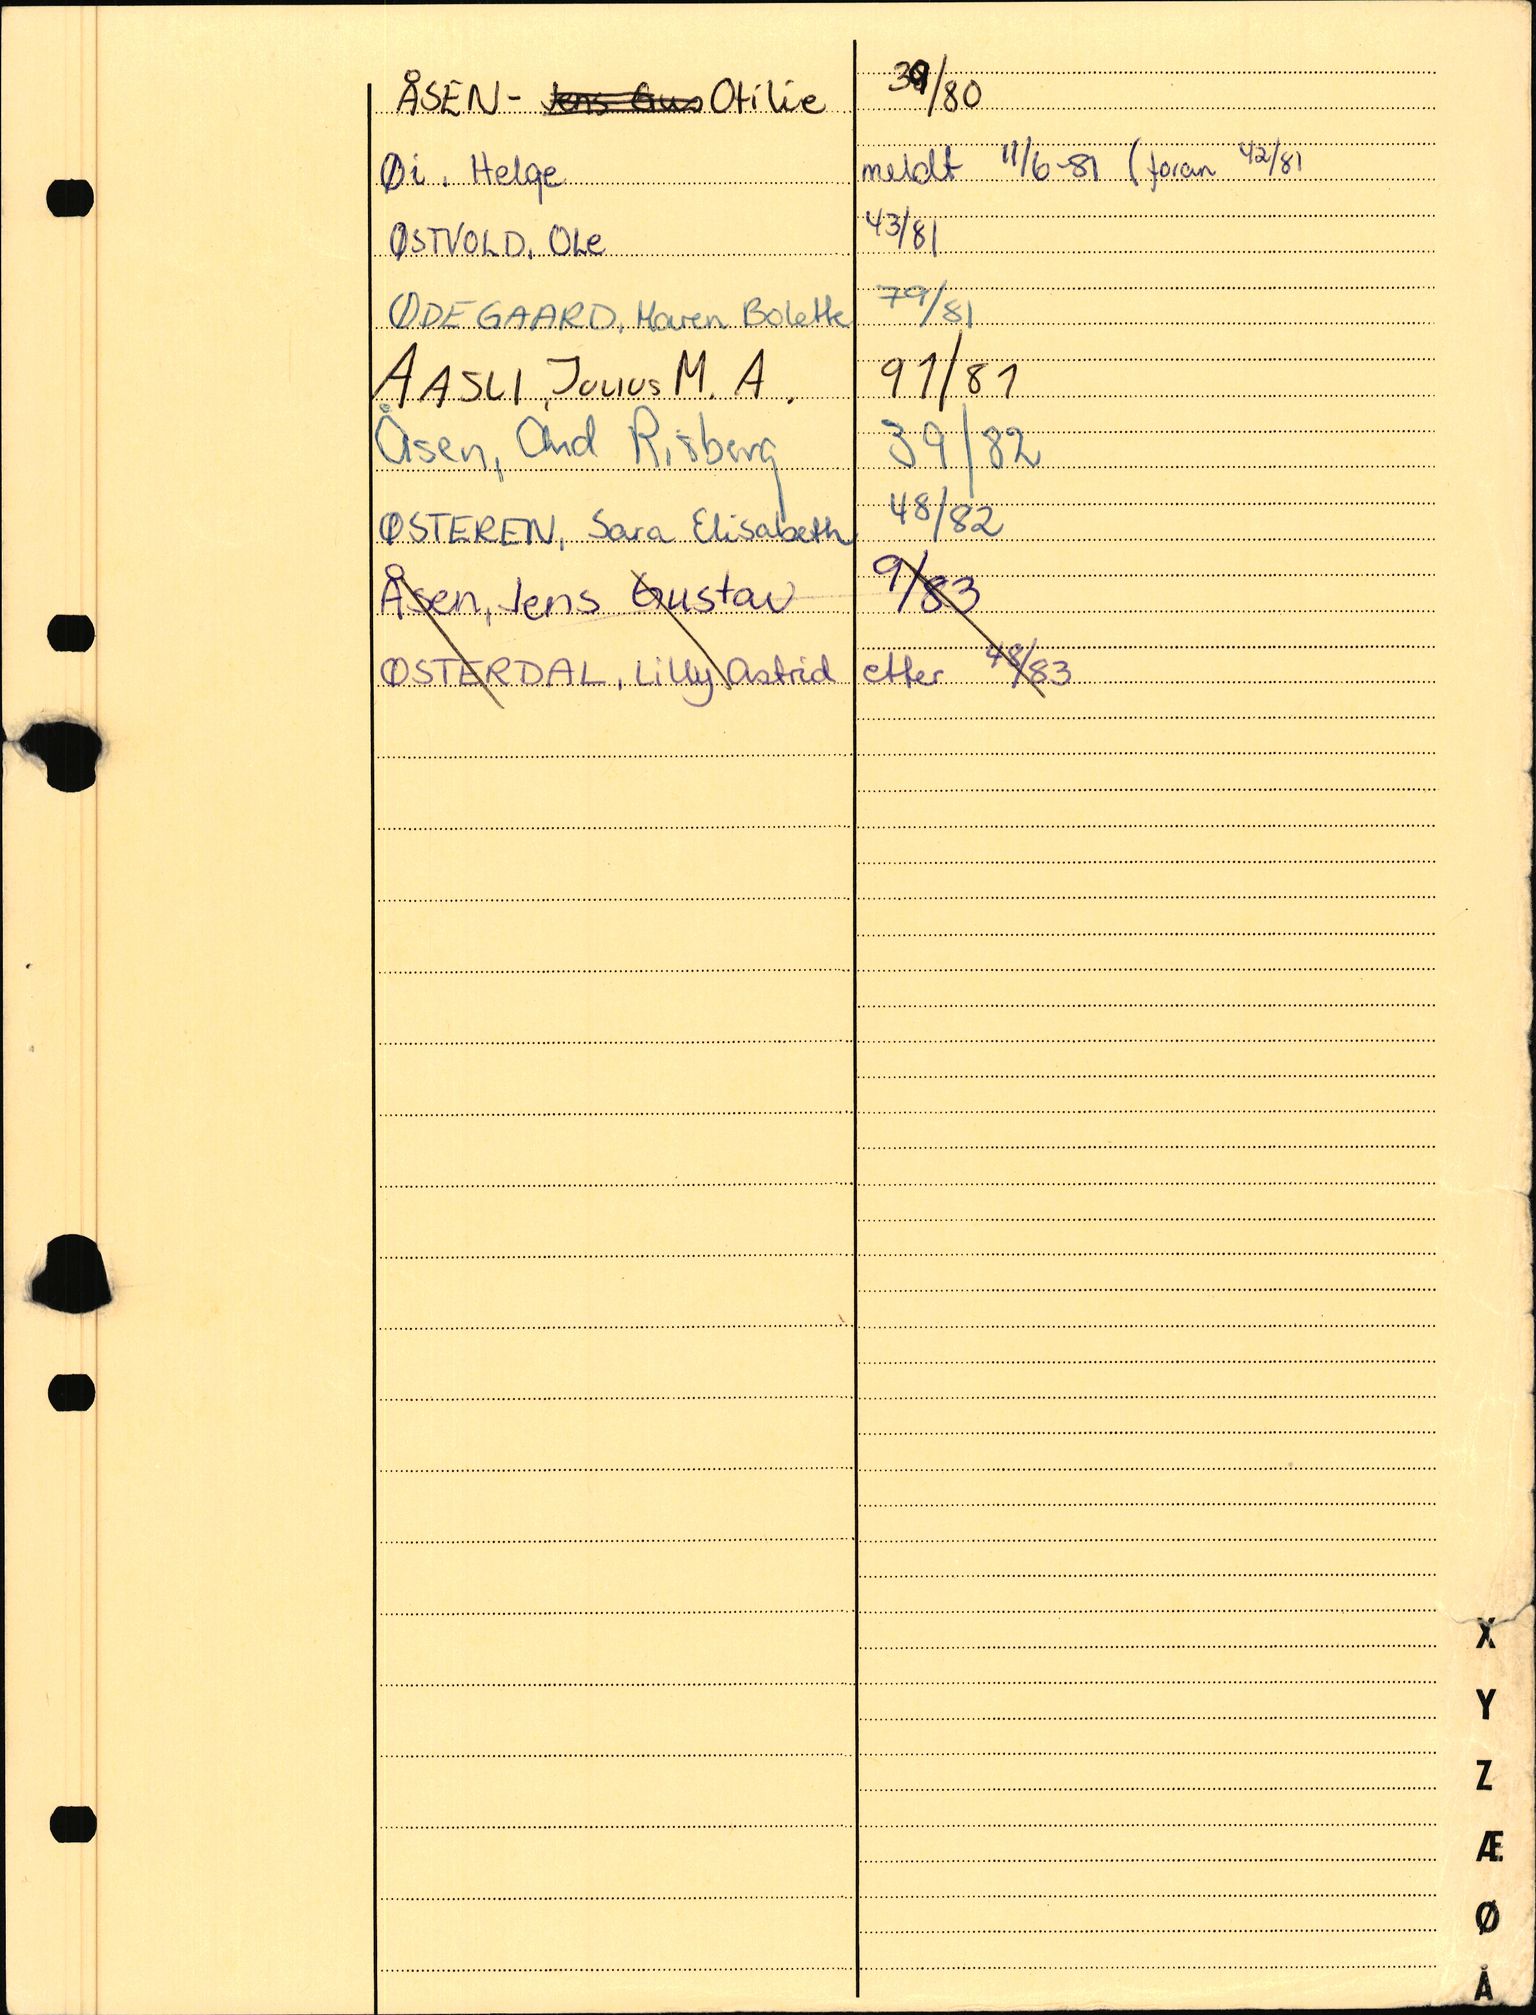 ÅSEN - Jens Gus Otilie 39/80
Øi. Helge meldt 11/6-81 (foran 42/81
ØSTVOLD, Ole 43/81
ØDEGAARD, Maren Bolette 79/81
AASLI, Julius M. A. 91/81
Åsen, Risberg 39/82
ØSTEREN, Sara Elisabeth 48/82
Åsen, Jens Gustav 9/83
ØSTERDAL, Lilly Astrid etter 48/83
X
Y
Z
Æ
Ø
Å